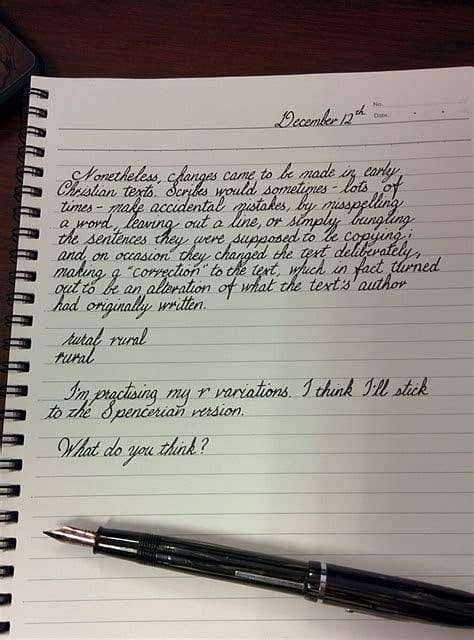 No.
Date
December 12th
Nonetheless, changes came to be made in early
Christian texts. Scribes would sometimes - lots of
times - make accidental mistakes, by misspelling
a word, leaving out a line, or simply bungling
the sentences they were supposed to be copying;
and, on occasion they changed the text deliberately,
making a "correction" to the text, which in fact turned
out to be an alteration of what the text's author
had originally written.
rural rural
rural
I'm practising my r variations. I think I'll stick
to the Spencerian version.
What do you think?